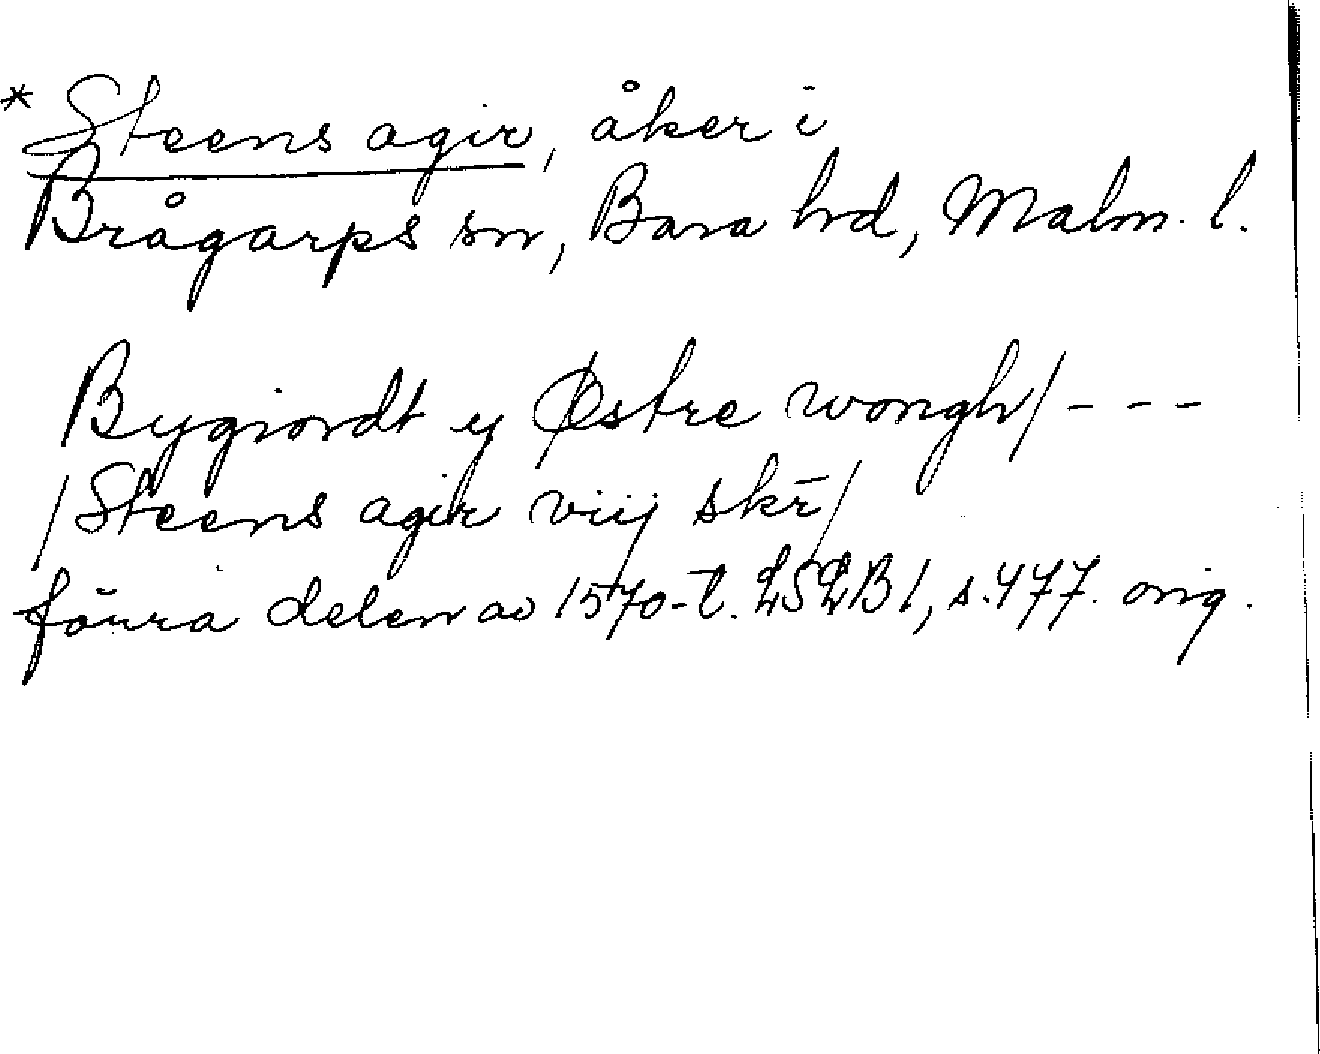 * Steens agir, åker i
Brågarps sn, Bara hd, Malm. l.
Bygiordt y Østre wongh/ - - -
/Steens agir viij skr̄/
förra delen av 1570-t. LSLB 1, s. 477. orig.